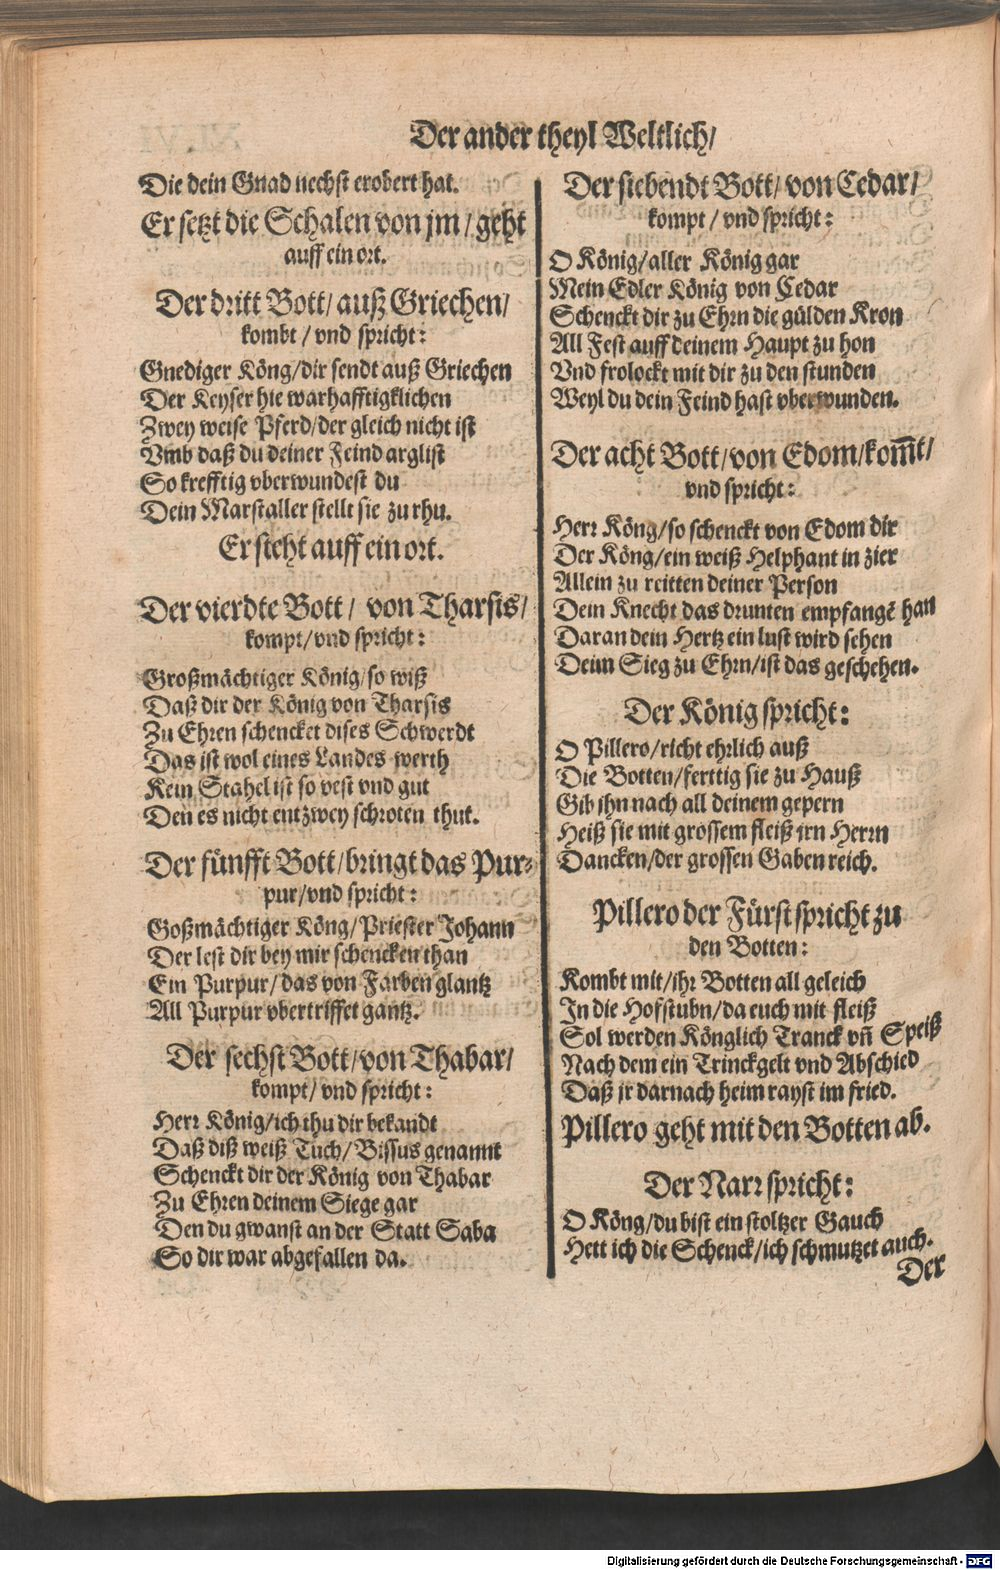 Der ander theyl Weltlich/
Die dein Gnad nechst erobert hat.
Er setzt die Schalen von jm/ geht
auff ein ort.
Der dritt Bott/ auß Griechen/
kombt/ vnd spricht:
Gnediger Köng/ dir sendt auß Griechen
Der Keyser hie warhafftigklichen
Zwey weise Pferd/ der gleich nicht ist
Vmb daß du deiner Feind arglist
So krefftig vberwundest du
Dein Marstaller stellt sie zu rhu.
Er steht auff ein ort.
Der vierdte Bott/ von Tharsis/
kompt/ vnd spricht:
Großmächtiger König/ so wiß
Daß dir der König von Tharsis
Zu Ehren schencket dises Schwerdt
Das ist wol eines Landes werth
Kein Stahel ist so vest vnd gut
Den es nicht entzwey schroten thut.
Der fünfft Bott/ bringt das Pur-
pur/ vnd spricht:
Goßmächtiger Köng/ Priester Johann
Der lest dir bey mir schencken than
Ein Purpur/ das von Farben glantz
All Purpur vbertriffet gantz.
Der sechst Bott/ von Thabar/
kompt/ vnd spricht:
Herr König/ ich thu dir bekandt
Daß diß weiß Tuch/ Bissus genannt
Schenckt dir der König von Thabar
Zu Ehren deinem Siege gar
Den du gwanst an der Statt Saba
So dir war abgefallen da.
Der siebendt Bott/ von Cedar/
kompt/ vnd spricht:
O König/ aller König gar
Mein Edler König von Cedar
Schenckt dir zu Ehrn die gülden Kron
All Fest auff deinem Haupt zu hon
Vnd frolockt mit dir zu den stunden
Weyl du dein Feind hast vberwunden.
Der acht Bott/ von Edom/ kom̄t/
vnd spricht:
Herr Köng/ so schenckt von Edom dir
Der Köng/ ein weiß Helphant in zier
Allein zu reitten deiner Person
Dein Knecht das drunten empfangē han
Daran dein Hertz ein lust wird sehen
Deim Sieg zu Ehrn/ ist das geschehen.
Der König spricht:
O Pillero/ richt ehrlich auß
Die Botten/ ferttig sie zu Hauß
Gib jhn nach all deinem gepern
Heiß sie mit grossem fleiß jrn Herrn
Dancken/ der grossen Gaben reich.
Pillero der Fürst spricht zu
den Botten:
Kombt mit/ ihr Botten all geleich
In die Hofstubn/ da euch mit fleiß
Sol werden Könglich Tranck vñ Speiß
Nach dem ein Trinckgelt vnd Abschied
Daß jr darnach heim rayst im fried.
Pillero geht mit den Botten ab.
Der Narr spricht:
O Köng/ du bist ein stoltzer Gauch
Hett ich die Schenck/ ich schmutzet auch.
Der
Digitalisierung gefördert durch die Deutsche Forschungsgemeinschaft - DFG